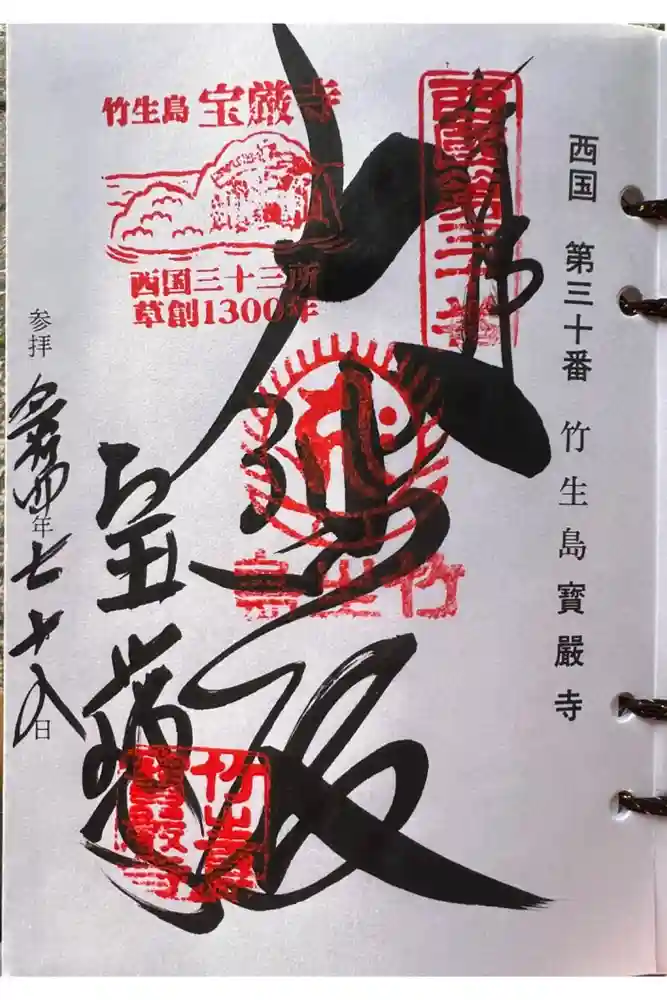 西国 第三十番 竹生島寶嚴寺
西國第三十番
大悲殿
竹生島
竹生島 宝厳寺
西国三十三所
草創1300年
宝厳寺
竹生島
寶嚴寺
参拝 令和四年七 十八日